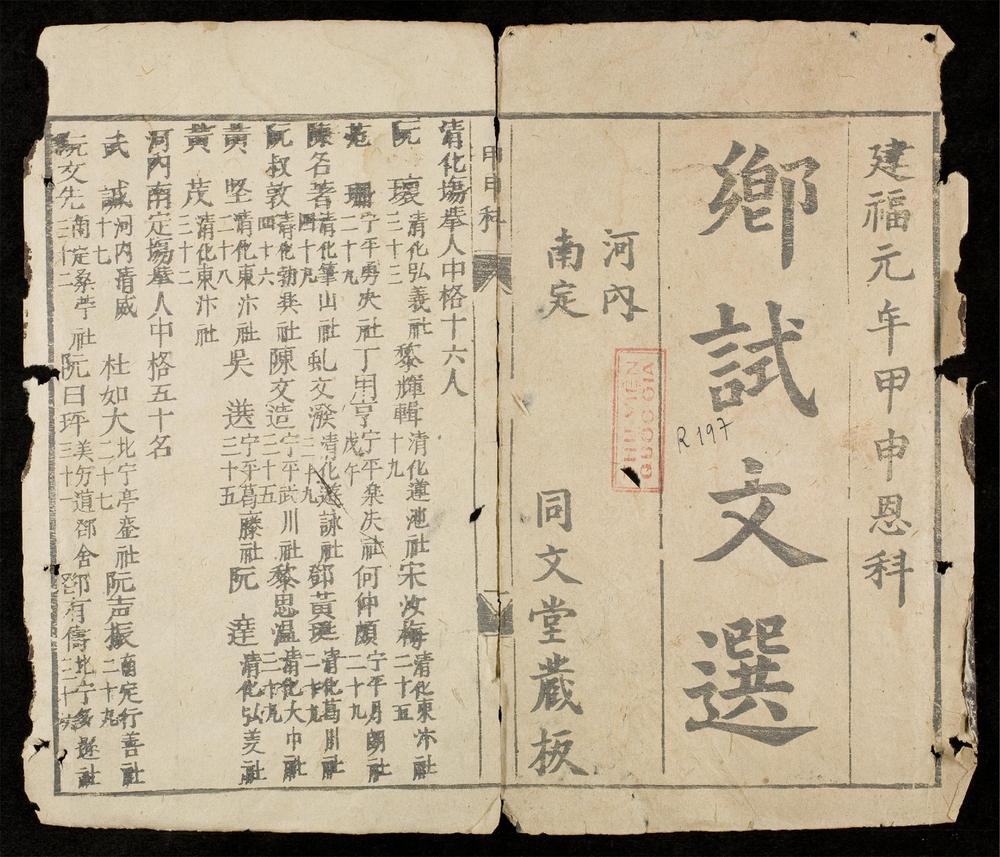 建福元年甲申恩科
鄉試文選
河內
南定
同文堂藏板
R 197
THƯ VIỆN
QUỐC GIA
甲申科
清化場舉人中格十六人
阮環 清化弘義社 三十三 黎輝輯 清化遵池社 十九 宋汝梅 清化東汴社 二十五
范珊 寧平勇決社 二十九 丁用亨 寧平 戊午 何仲 寧平月朗社 二十九
陳名著 清化筆山社 四十九 虬文潑 清化 詠社 二十九 鄧黃 清化葛川社
阮叔敦 清化勃 社 四十六 陳文造 宁平武川社 二十五 黎思温 清化大中社
黃堅 清化東汴社 二十八 吳選 宁平葛藤社 三十五 阮達 清化弘 社
黃茂 清化東汴社 三十二
河內南定場舉人中格五十名
武誠 河内清威 十七 杜如大 北宁亭 社 二十七 阮声振 南定行善社 二十九
阮文先 南定桑苧社 三十二 阮曰坪 美 道鄧舍 三十一 鄧有 北宁 社